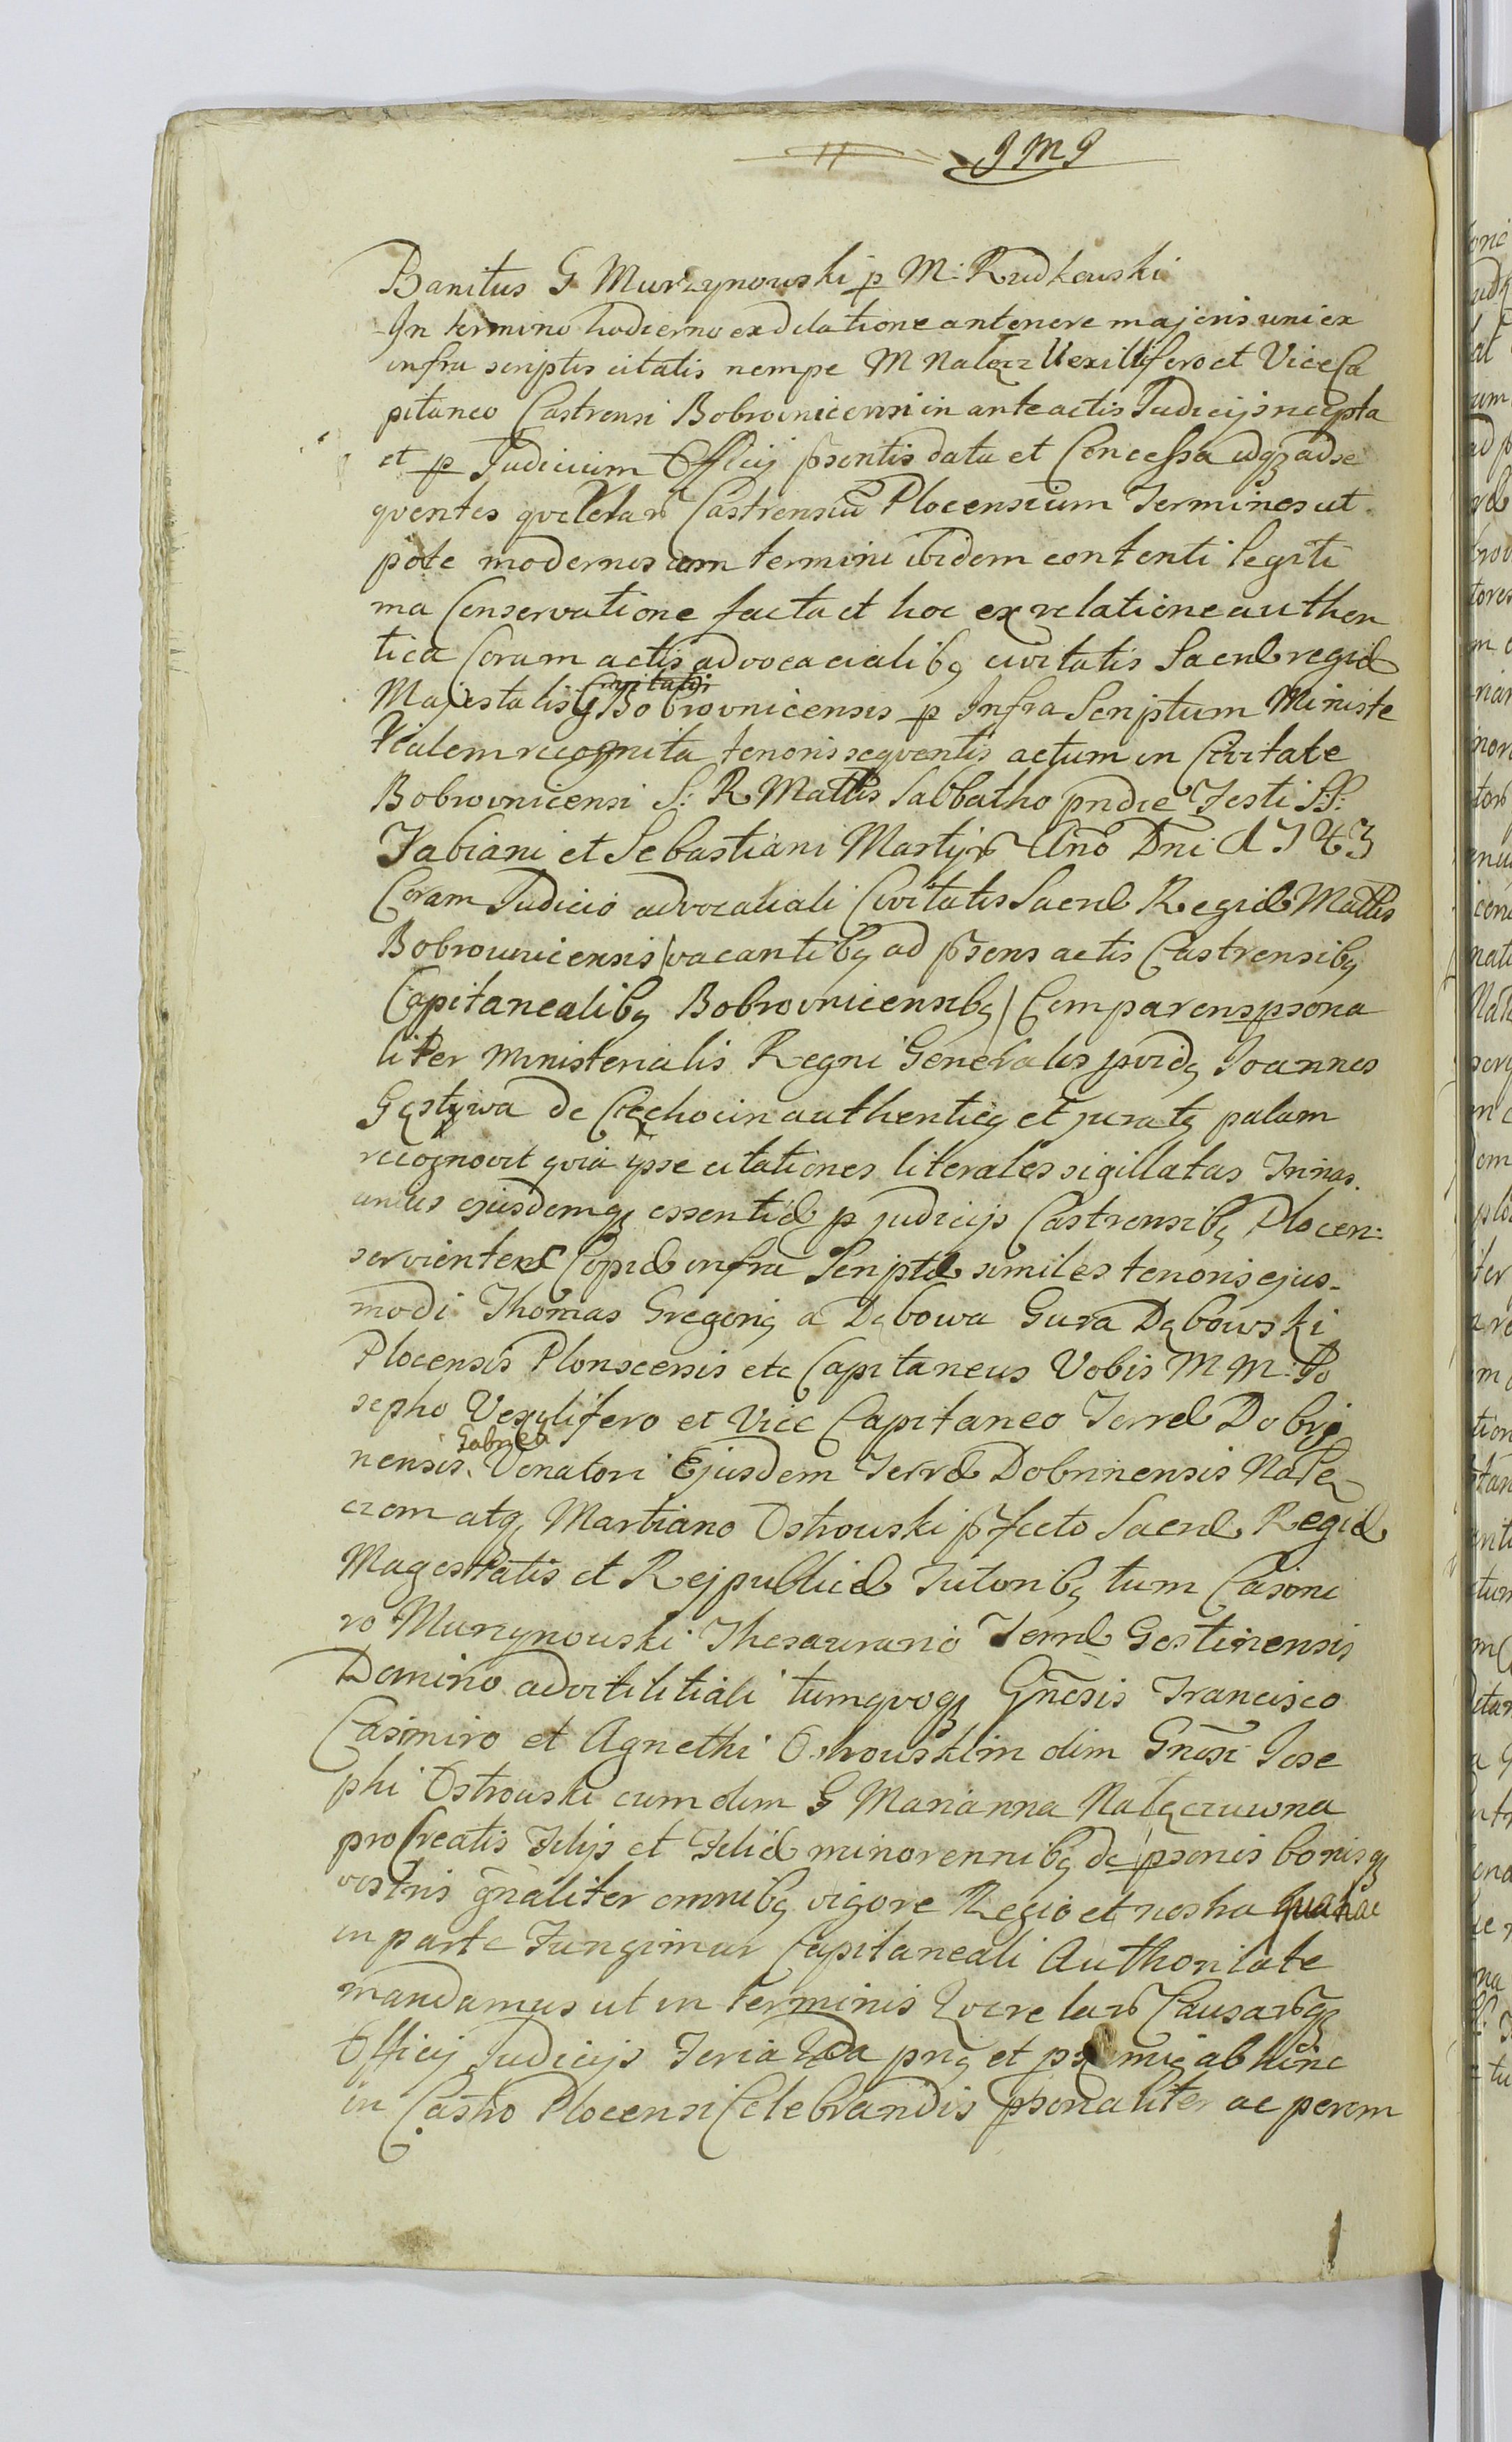 JMJ
Banitus G Murzynowski p M: Rudkowski
In termino hodierno ex dilatione antenere majoris uni ex
infra scriptis citatis nempe M Nałęcz Vexillifero et Vice Ca
pitaneo Castrensi Bobrownicensi in ante actis Judicijs recepta
et p Judicium Officij psentis data et Concessa adqz ad se
quentes querelar Castrensiu Plocensium Terminos ut
pote modernos cum termini ibidem contenti legiti
ma Conservatione facta et hoc ex relatione authen
tica Coram actis advocacialibq civitatis Sacræ regiæ
Majestatis Bobrownicensis p Infra Scriptum Ministe
rialem recognita tenoris sequentis actum in Civitate
Bobrownicensi S: R Mattis Sabbatho pridie Festi SS:
Fabiani et Sebastiani Martyr Ano Dni 1743
Coram Judicio advocatiali Civitatis Sacræ Regiæ Mattis
Bobrownicensis /vacantibq ad psens actis Castrensibq
Capitanealibq Bobrownicensibq/ Comparens psona
liter Ministerialis Regni Generalis pvidq Joannes
Gęstywa de Czechocin authenticq et juratq palam
recognovit quia ipse citationes literales sigillatas Trinas
unius ejusdemqz essentiæ p judicijs Castrensibq Plocen:
servientes Copiæ infra Scriptæ similes tenoris ejus-
modi Thomas Gregoriq a Dębowa Gura Dębowski
Plocensis Plonscensis etc Capitaneus Vobis M M: Jo
sepho Vexylifero et Vice Capitaneo Terræ Dobrzi
nensis Gabrieli Venatori Ejusdem Terræ Dobrinensis Nałę
czom atq Martiano Ostrowski pfecto Sacræ Regiæ
Magestatis et Rejpublicæ Tutoribq tum Casimi
ro Murzynowski Thesaurario Terræ Gostinensis
Domino advitilitiali tumqvoqz Gnosis Francisco
Casimiro et Agnethi Ostrowskim olim Gnosi Jose
phi Ostrowski cum olim G Marianna Nałęczuwna
procreatis Filijs et Filiæ minorennibq de psonis bonisqz
vestris gnaliter omnibq vigore Regio et nostra qua hac
in parte Fungimur Capitaneali Authoritate
mandamus ut in Terminis Querelar Causarqz
Officij Judicijs Feria 2da pnq et pxmiq abhinc
in Castro Plocensi Celebrandis psonaliter ac perem